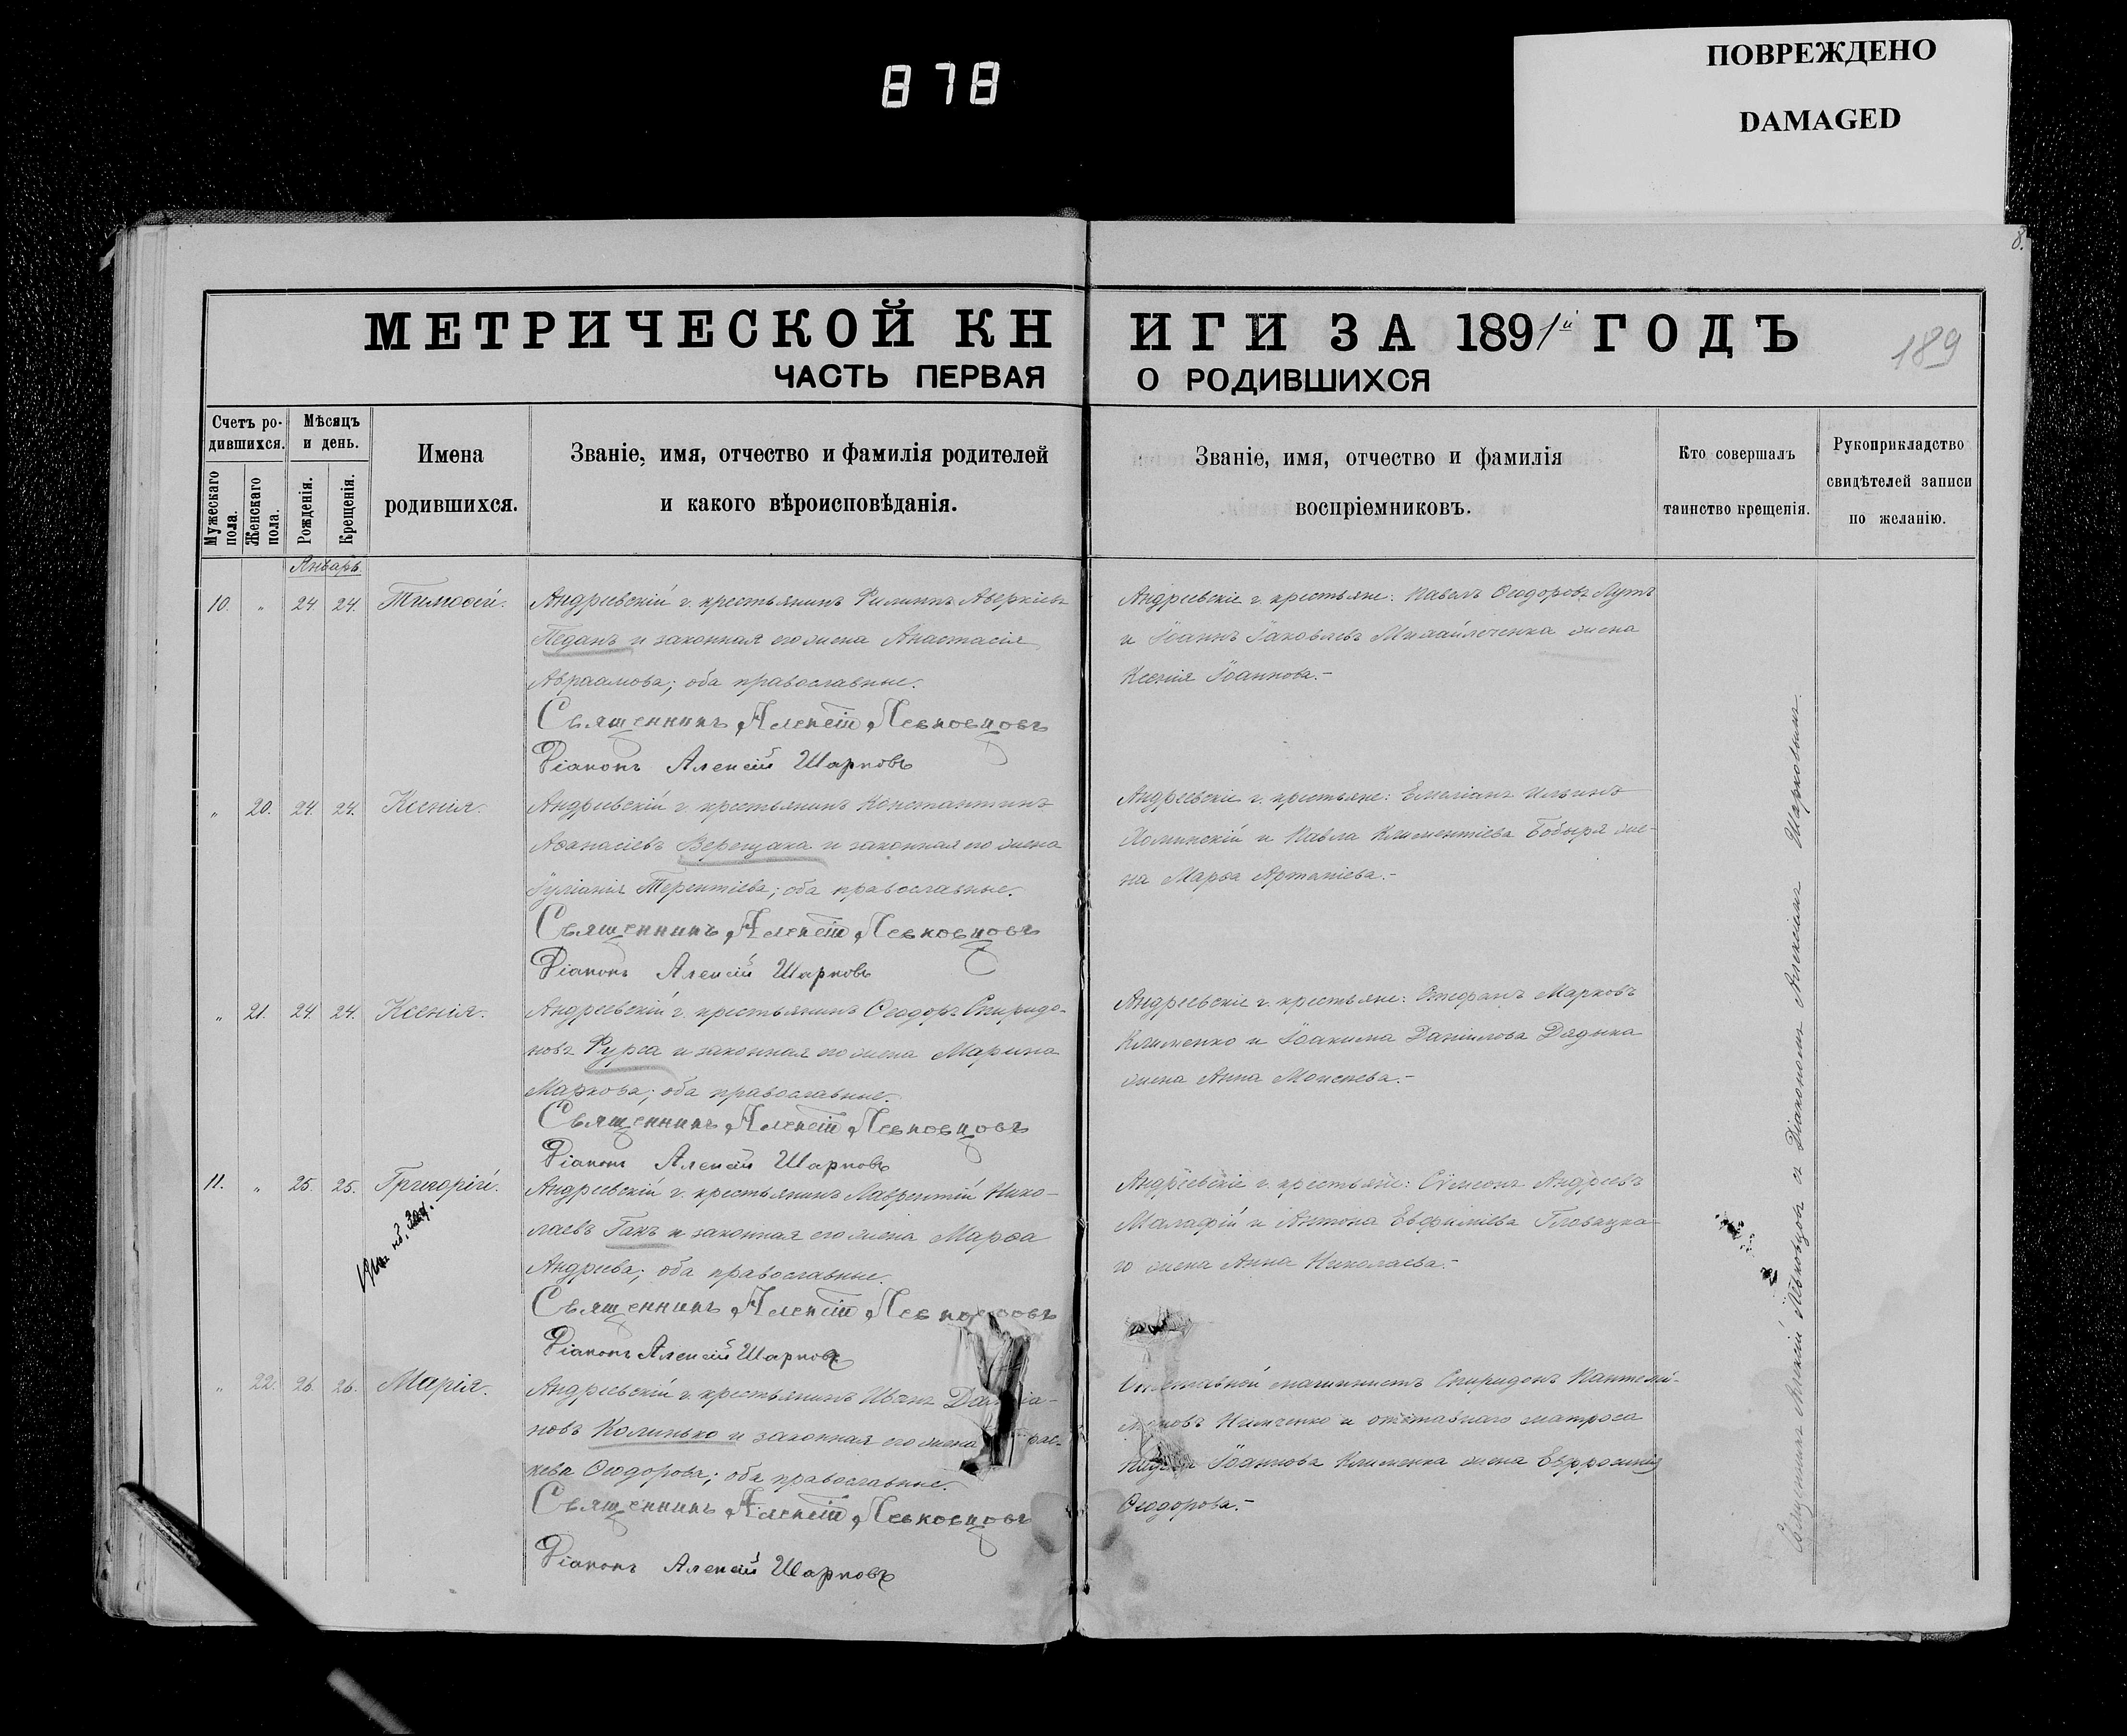 878
ПОВРЕЖДЕНО
DAMAGED
8.
МЕТРИЧЕСКОЙ КНИГИ ЗА 1891й ГОДЪ
189
ЧАСТЬ ПЕРВАЯ О РОДИВШИХСЯ
Счетъ ро-
дившихся.
Мужескаго пола.
Женскаго пола.
Мѣсяцъ
и день.
Рожденія.
Крещенія.
Имена
родившихся.
Званіе, имя, отчество и фамилія родителей
и какого вѣроисповѣданія.
Званіе, имя, отчество и фамилія
воспріемниковъ.
Кто совершалъ
таинство крещенія.
Рукоприкладство
свидѣтелей записи
по желанію.
Январь
10. „ 24 24. Тимоѳей.
Андреевскій г. крестьянинъ Филиппъ Аверкіевъ
Педанъ и законная его жена Анастасія
Авраамова; оба православные.
Священникъ Алексій Левковцовъ
Діаконъ Алексій Шарковъ
Андреевскіе г. крестьяне: Павелъ Ѳеодоровъ Лутъ
и Іоаннъ Іаковлевъ Михайлеченка жена
Ксенія Іоаннова.-
„ 20. 24. 24. Ксенія.
Андреевскій г. крестьянинъ Константинъ
Аѳанасіевъ Верещака и законная его жена
Іуліанія Терентіева; оба православные.
Священникъ Алексій Левковцовъ
Діаконъ Алексій Шарковъ
Андреевскіе г. крестьяне: Емеліанъ Ильинъ
и Павла Климентіева Бобыря же-
на Марѳа
„ 21. 24. 24. Ксенія.
Андреевскій г. крестьянинъ Ѳеодоръ Спиридо-
новъ Фурса и законная его жена Марина
Маркова; оба православные.
Священникъ Алексій Левковцовъ
Діаконъ Алексій Шарковъ
Андреевскіе г. крестьяне: Стефанъ Марковъ
Клименко и Іоакима Даніилова Дядыка
жена Анна Моисеева.-
11. „ 25. 25. Григорій.
Андреевскій г. крестьянинъ Лаврентій Нико-
лаевъ Гакъ и законная его жена Марѳа
Андреева; оба православные.
Священникъ Алексій Левковцовъ
Діаконъ Алексій Шарковъ
Андреевскіе г. крестьяне: Сѵмеонъ Андреевъ
Малафій и Антона Евфиміева Гловацка-
го жена Анна Николаева.-
„ 22. 26. 26. Марія.
Андреевскій г. крестьянинъ Иванъ
новъ Колинько и законная его жена
кева Ѳеодорова; оба православные.
Священникъ Алексій Левковцовъ
Діаконъ Алексій Шарковъ
машинистъ Спиридонъ Пантелей-
моновъ и отставнаго матроса
Іоаннова Клименка жена Евфросинія
Ѳеодорова.-
Священникъ Алексій Левковцовъ съ Діакономъ Алексіемъ Шарковымъ.